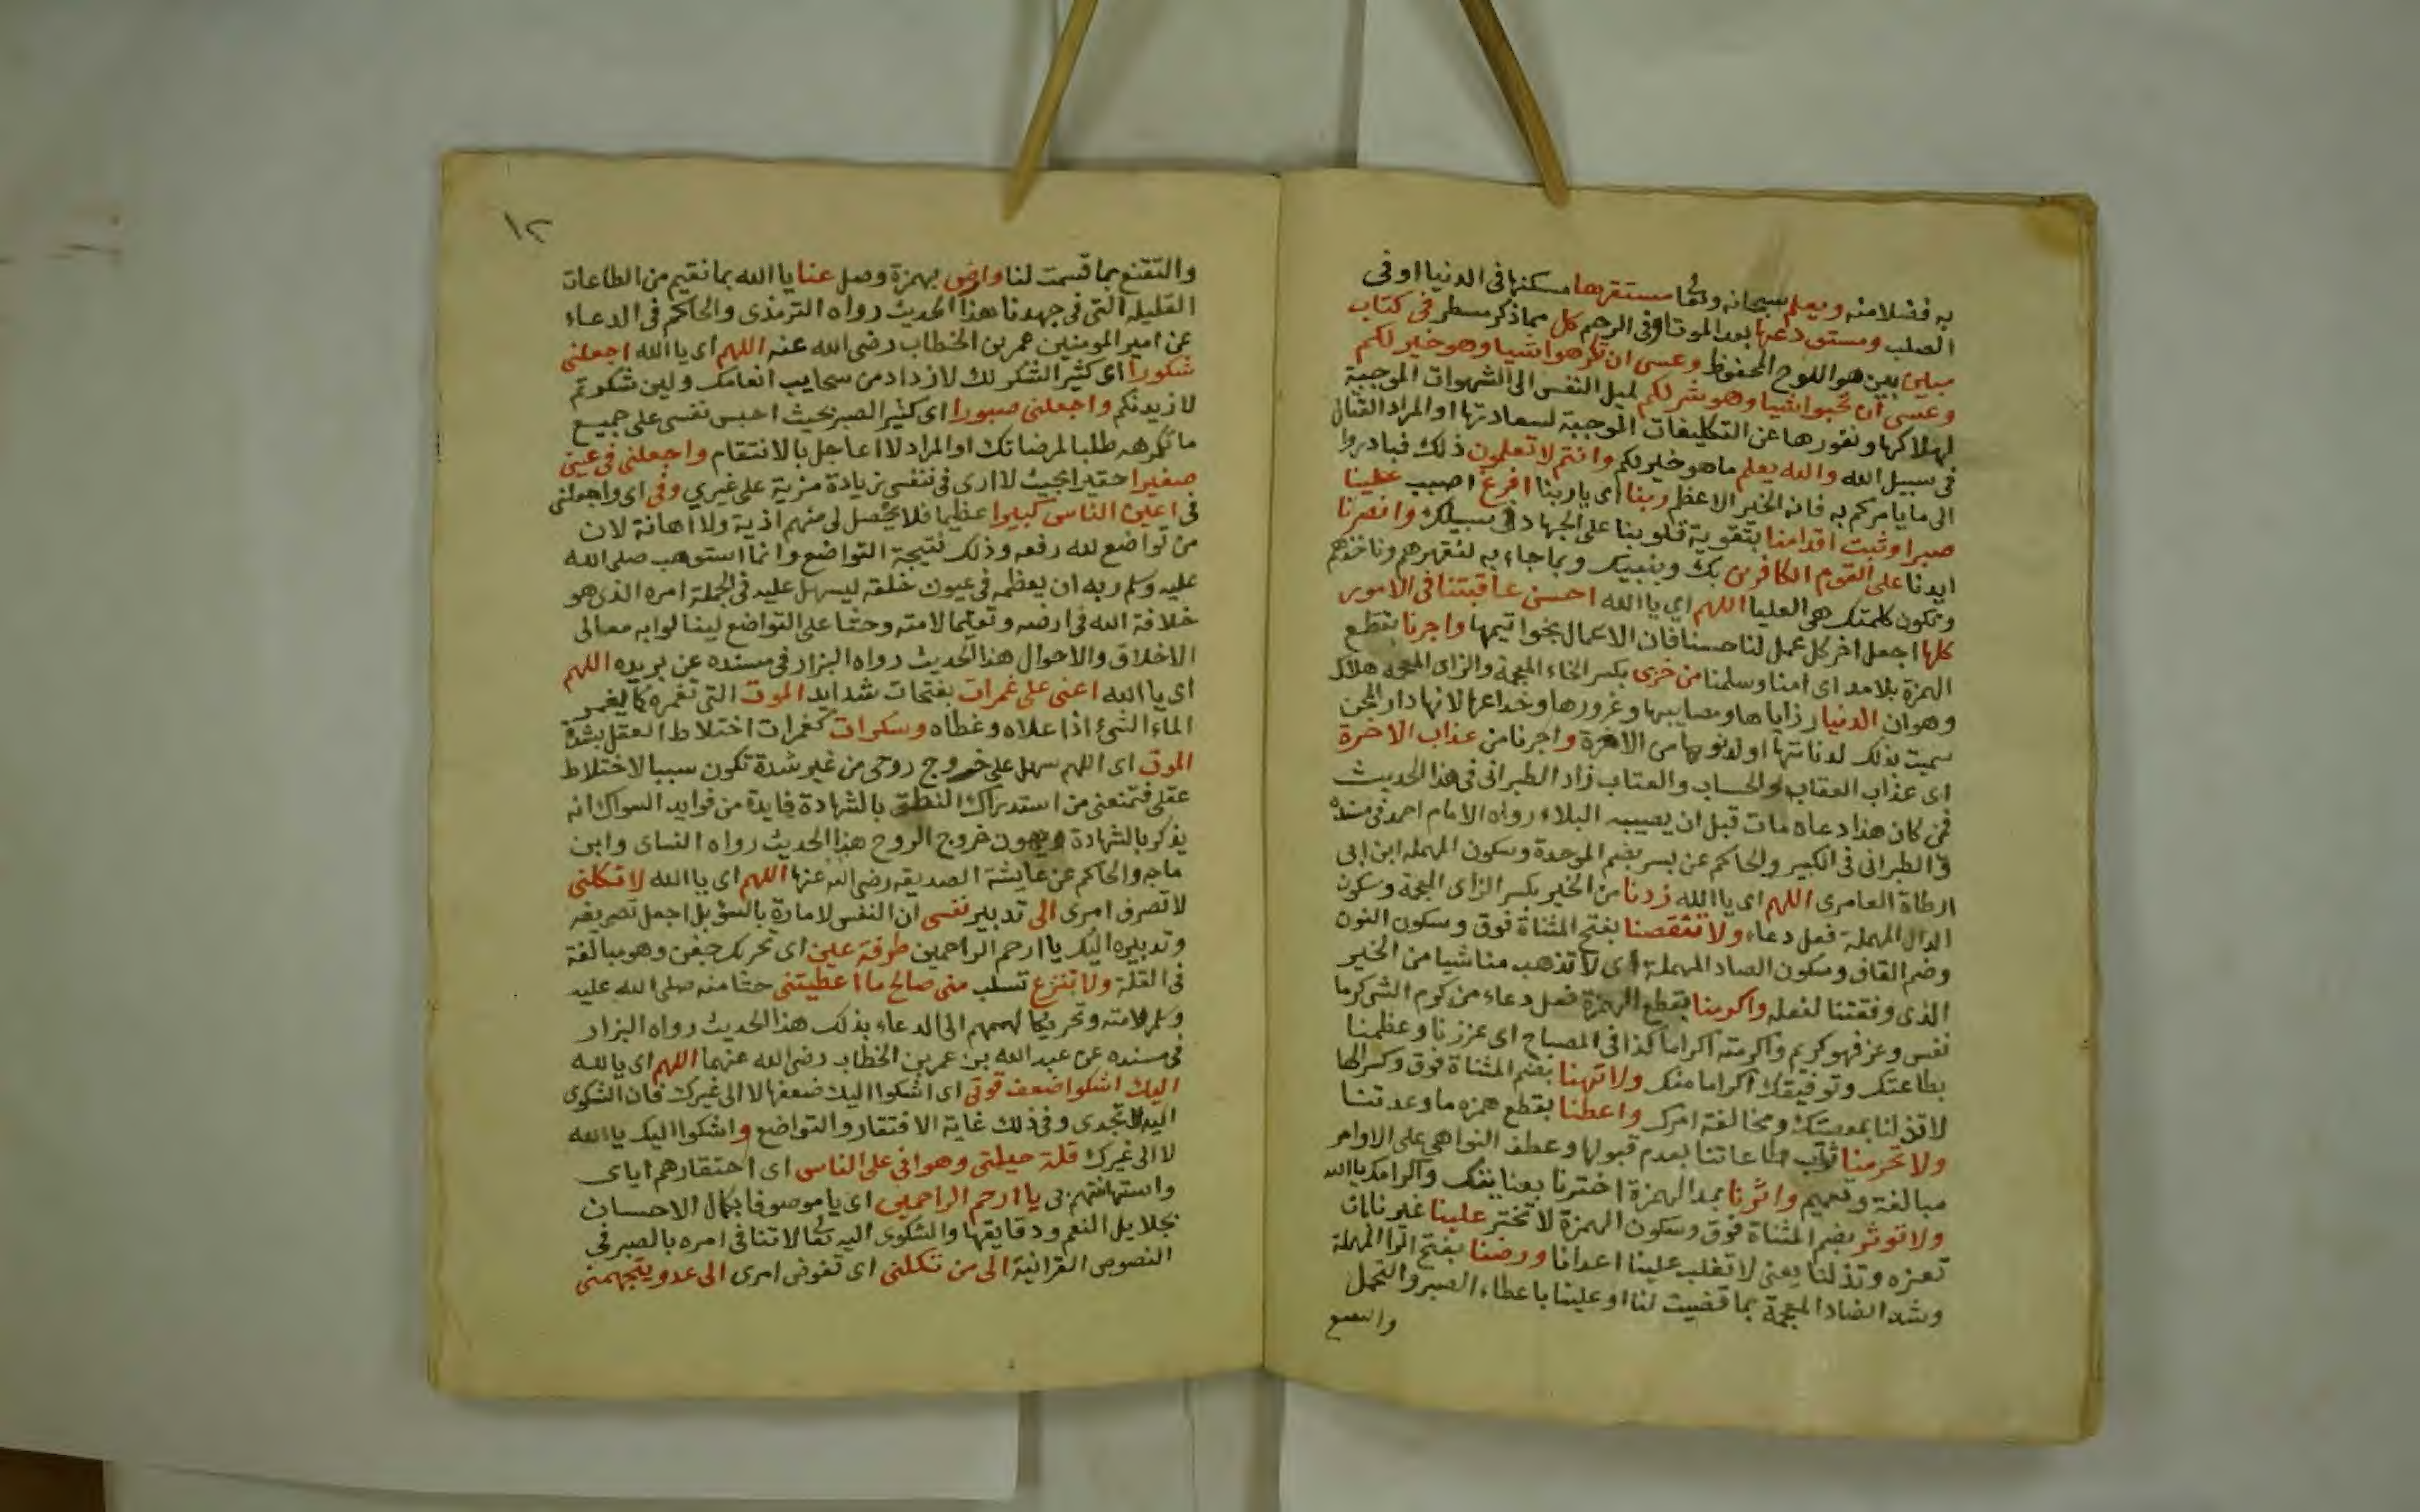 به فضلا منه ويعلم سبحانه وتعالى مستقرها مسكنها فى الدنيا او فى
الصلب ومستودعها بعد الموت او فى الرحم كل مما ذكر مسطر فى كتاب
مبين بين هو اللوح المحفوظ وعسى ان تكرهوا شيا وهو خير لكم
وعسى ان تحبوا شيا وهو شر لكم لميل النفس الى الشهوات الموجبة
لهلاكها ونفورها عن التكليفات الموجبة لسعادتها او المراد القتال
فى سبيل الله والله يعلم ما هو خير لكم وانتم لا تعلمون ذلك فبادروا
الى ما يامركم به فانه الخير الاعظم ربنا اى يا ربنا افرغ اصبب علينا
صبرا وثبت اقدامنا بتقوية قلوبنا على الجهاد فى سبيلك وانصرنا
ايدنا على القوم الكافرين بك وبنبيك وبما جاء به لنقهرهم وناخذهم
وتكون كلمتك هى العليا اللهم اي يا الله احسن عاقبتنا فى الامور
كلها اجعل اخر كل عمل لنا حسنا فان الاعمال بخواتيمها واجرنا بقطع
الهمزة بلا مد اى امنا وسلمنا من خزى بكسر الخاء المعجمة والزاى المعجمة هلاك
وهوان الدنيا رزاياها ومصايبها وغرورها وخداعها لانها دار المحن
سميت بذلك لدناءتها او لدنوها من الاخرة واجرنا من عذاب الاخرة
اى عذاب العقاب والحساب والعتاب زاد الطبرانى فى هذا الحديث
فمن كان هذا دعاه مات قبل ان يصيبه البلاء رواه الامام احمد فى مسنده
والطبرانى فى الكبير والحاكم عن بسر بضم الموحدة وسكون المهملة ابن ابى
ارطاة العامرى اللهم اى يا الله زدنا من الخير بكسر الزاى المعجمة وسكون
الدال المهملة فعل دعاء ولا تنقصنا بفتح المثناة فوق وسكون النون
وضم القاف وسكون الصاد المهملة اى لا تذهب منا شيا من الخير
الذى وفقتنا لفعله واكرمنا بقطع الهمزة فعل دعاء من كرم الشى كرما
نفس وعز فهو كريم واكرمته اكراما كذا فى المصباح اى عززنا وعظمنا
بطاعتك وتوفيقك اكراما منك ولا تهنا بضم المثناة فوق وكسر الها
لا تذلنا بمعصيتك ومخالفة امرك واعطنا بقطع همزه ما وعدتنا
ولا تحرمنا ثواب طاعاتنا بعدم قبولها وعطف النواهى على الاوامر
مبالغة وتعميم واثرنا بمد الهمزة اخترنا بعنايتك واكرامك يا الله
ولا توثر بضم المثناة فوق وسكون الهمزة لا تختر علينا غيرنا
تعزه وتذلنا يعنى لا تغلب علينا اعدانا ورضنا بفتح الرا المهملة
وشد الضاد المعجمة بما قضيت لنا او علينا باعطاء الصبر والتحمل
والتقنع
١٢
والتقنع بما قسمت لنا وارض بهمزة وصل عنا يا الله بما نقيم من الطاعات
القليلة التى فى جهدنا هذا الحديث رواه الترمذى والحاكم فى الدعاء
عن امير المومنين عمر بن الخطاب رضى الله عنه اللهم اى يا الله اجعلنى
شكورا اى كثير الشكر لك لازداد من سحايب انعامك ولين شكرتم
لازيدنكم واجعلنى صبورا اى كثير الصبر بحيث احبس نفسى على جميع
ما تكرهه طلبا لمرضاتك او المراد لا اعاجل بالانتقام واجعلنى فى عينى
صغيرا حقيرا بحيث لا ارى فى نفسى زيادة مزية على غيري وفى اى واجعلنى
فى اعين الناس كبيرا عظيما فلا يحصل لى منهم اذية ولا اهانة لان
من تواضع لله رفعه وذلك نتيجة التواضع وانما استوهب صلى الله
عليه وسلم ربه ان يعظمه فى عيون خلقه ليسهل عليه فى الجملة امره الذى هو
خلافة الله فى ارضه وتعليما لامته وحثا على التواضع لينالوا به معالى
الاخلاق والاحوال هذا الحديث رواه البزار فى مسنده عن بريده اللهم
اى يا الله اعنى على غمرات بفتحات شدايد الموت التى تغمره كما يغمر
الماء الشئ اذا علاه وغطاه وسكرات كغمرات اختلاط العقل بشدة
الموت اى اللهم سهل على خروج روحى من غير شدة تكون سببا لاختلاط
عقلى فتمنعنى من استدراك النطق بالشهادة فايدة من فوايد السواك انه
يذكر بالشهادة ويهون خروج الروح هذا الحديث رواه النساى وابن
ماجه والحاكم عن عايشة الصديقه رضى الله عنها اللهم اى يا الله لا تكلنى
لا تصرف امرى الى تدبير نفسى ان النفس لامارة بالسؤ بل اجعل تصريفه
وتدبيره اليك يا ارحم الراحمين طرفة عين اى تحريك جفن وهو مبالغة
فى القلة ولا تنزع تسلب منى صالح ما اعطيتنى حثا منه صلى الله عليه
وسلم لامته وتحريكا لهممهم الى الدعاء بذلك هذا الحديث رواه البزار
فى مسنده عن عبد الله بن عمر بن الخطاب رضى الله عنهما اللهم اى يا لله
اليك اشكوا ضعف قوتى اى اشكوا اليك ضعفها لا الى غيرك فان الشكوى
اليه لا تجدى وفى ذلك غاية الافتقار والتواضع واشكوا اليك يا الله
لا الى غيرك قلة حيلتى وهوانى على الناس اى احتقارهم اياى
واستهانتهم بى يا ارحم الراحمين اى يا موصوفا بكمال الاحسان
بجلايل النعم ودقايقها والشكوى اليه تعالى لا تنافى امره بالصبر فى
النصوص القرانية الى من تكلنى اى تفوض امرى الى عدو يتجهمنى